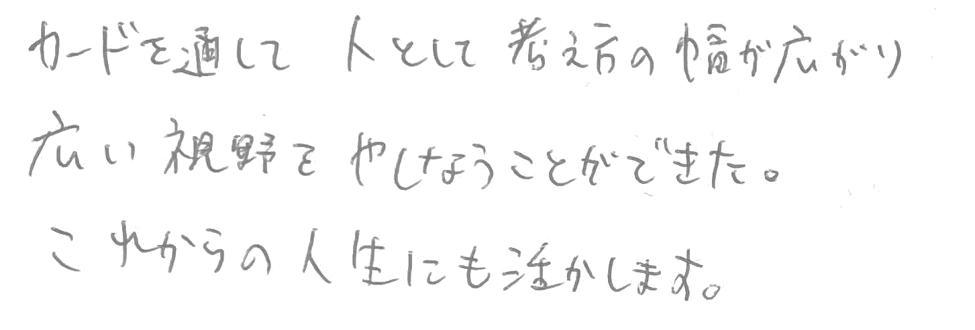 カードを通して 人として 考え方の幅が広がり
広い視野を やしなうことができた。
これからの人生にも活かします。